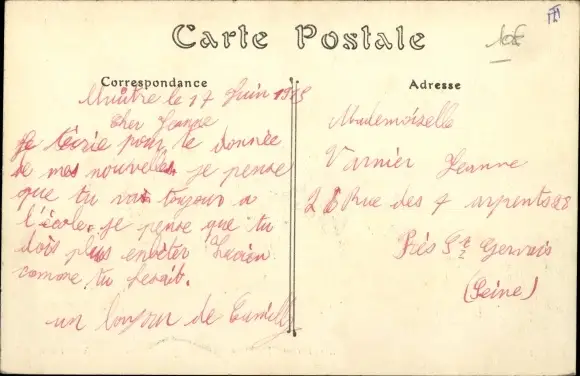 Carte Postale
Correspondance
le 17 Juin
Cher Jeanne
Je técrie pour te donnée
de mes nouvelles je pense
que tu vas toujour a
l'école. je pense que tu
dois plus enbéter Lucien
comme tu
un bonjour de
Adresse
Mademoiselle
Varnier Jeanne
Rue des 4 arpents 28
Prés St Gervais
(Seine)